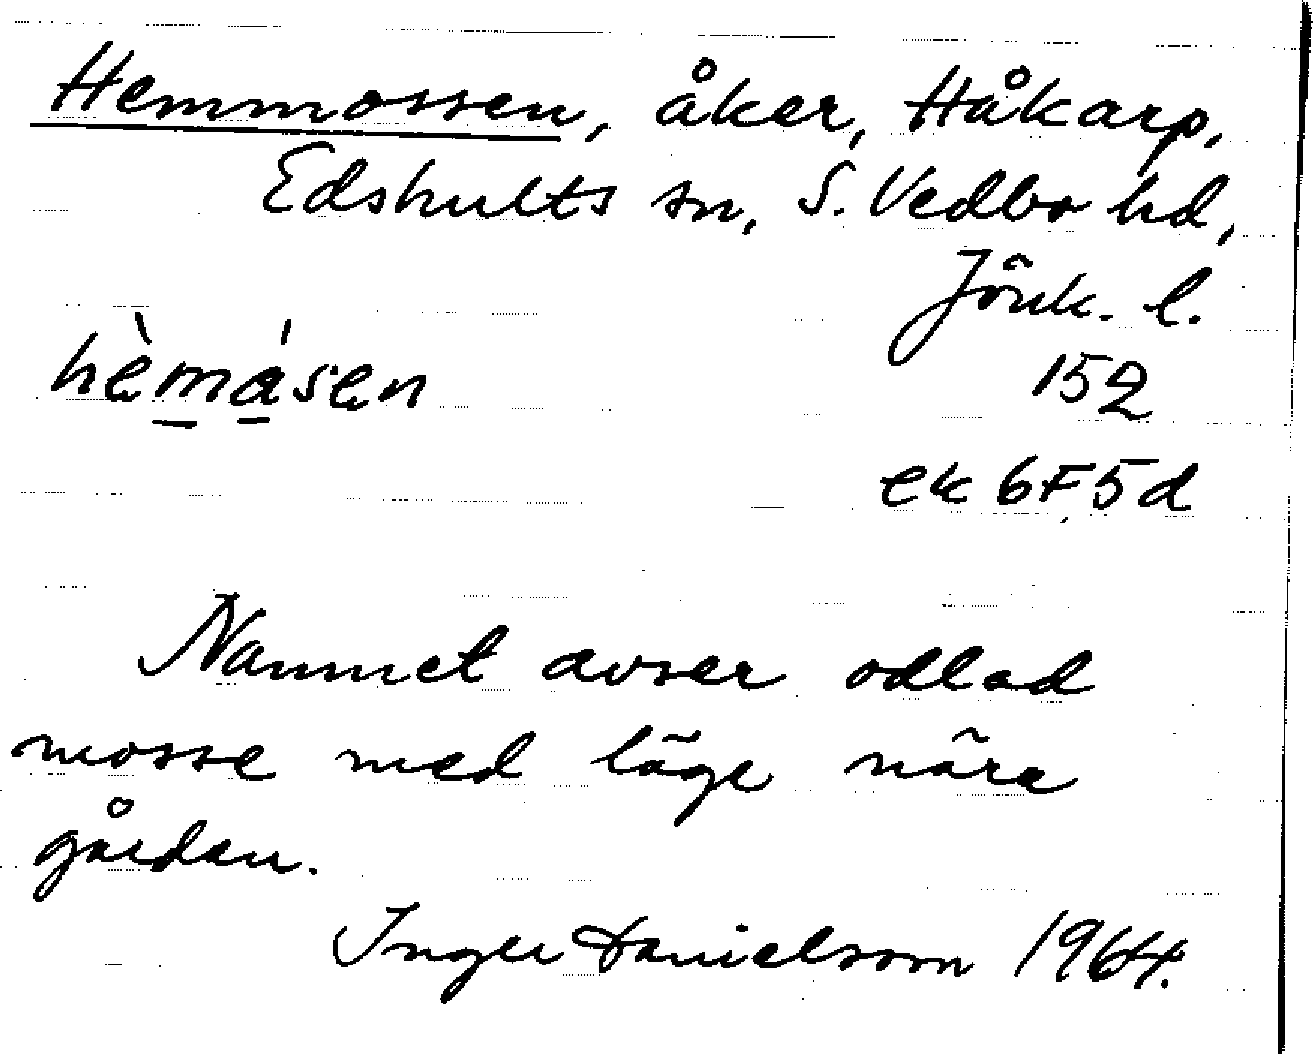 Hemmossen, åker, Håkarp,
Edshults sn, S. Vedbo hd,
Jönk. l.
hèmásen
152
ek 6F5d
Namnet avser odlad
mosse med läge nära
gården.
Inger Danielsson 1964.